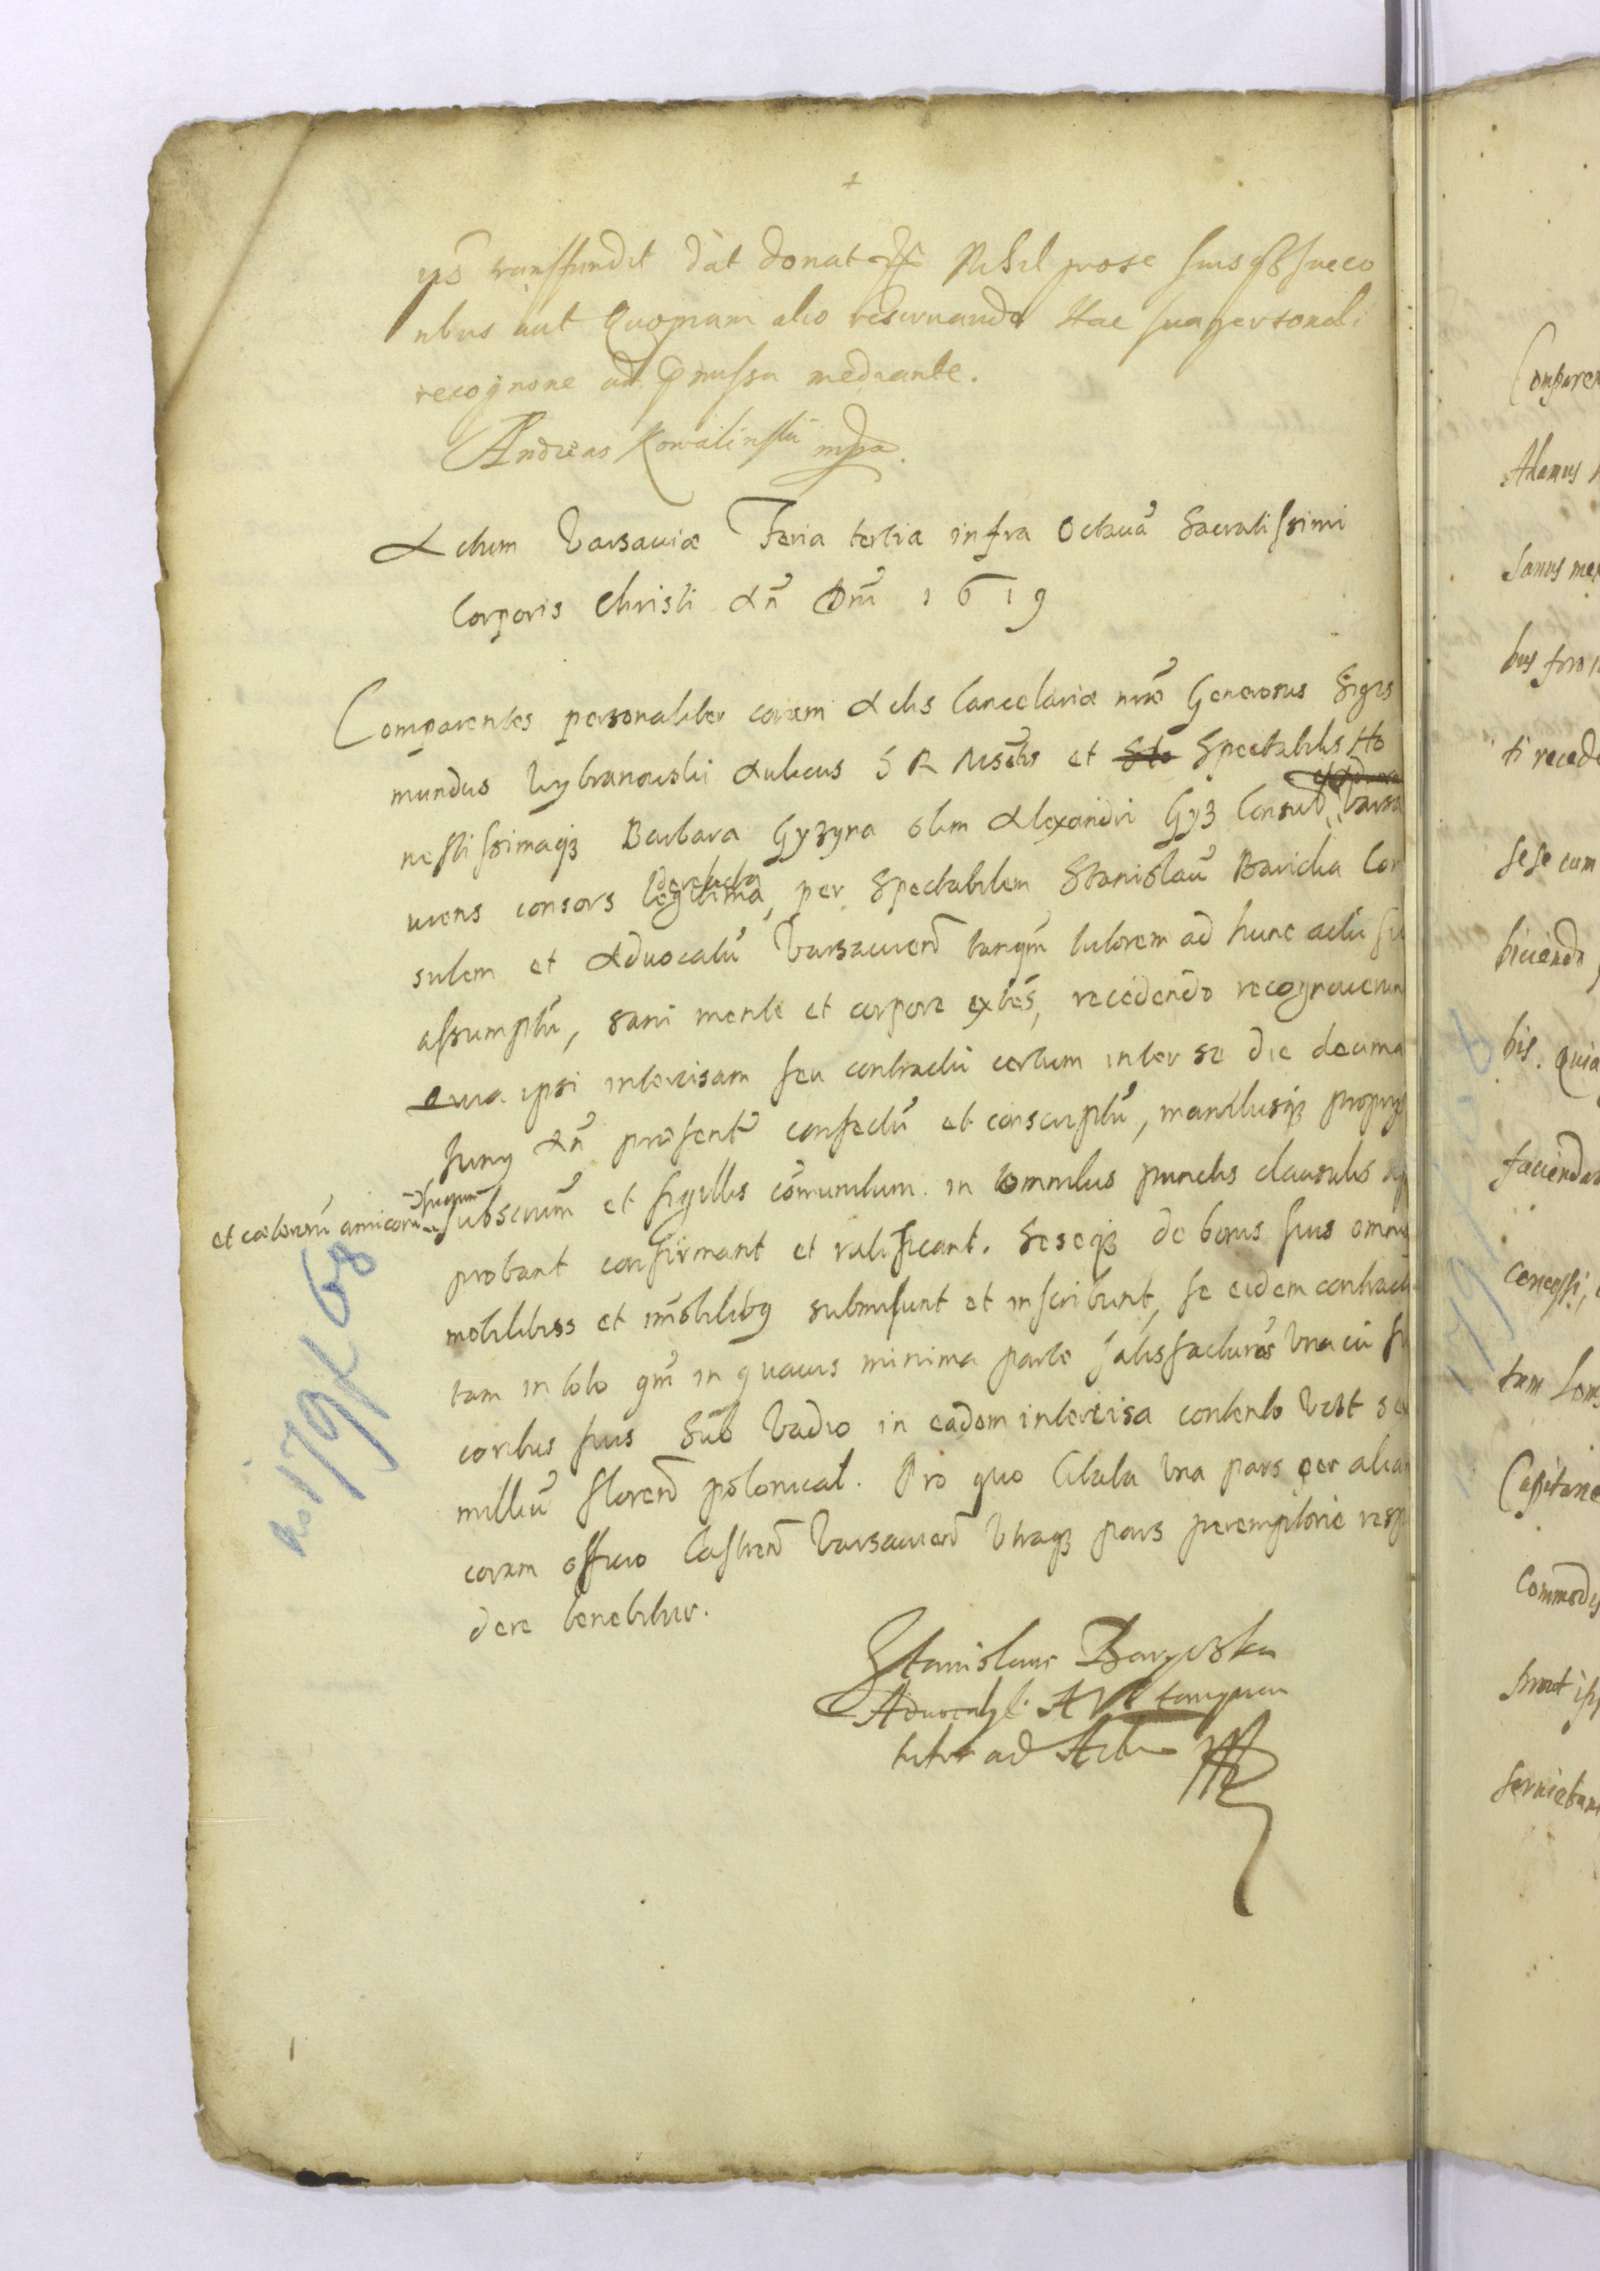 transfundit dat donat Nihil pro se suis qb succo
ribus aut Quopiam alio reservando Hac sua personali
recognone ad pmissa mediante.
Andreas Kowalinski mpa.
Actum Varsaviæ Feria tertia infra Octavā Sacratissimi
Corporis Christi An Dni 1619
Comparentes personaliter coram Actis Cancelariæ Generosus Sigis
mundus Wybranowski Aulicus S R Mtis et Spectabilis Ho
nestissimaqz Barbara Gyzyna olim Alexandri Gyz Consul Varsa
viens consors legitima derelicta, per Spectabilem Stanislaū Baricka Con
sulem et Advocatū Varsavien tanqm tutorem ad hunc actū
assumptū, sani mente et corpore extes, recedendo recognoverun
quia ipsi intercisam seu contractū certum inter se die decima
Juny An præsent confectū et conscriptū, manibusqz proprys
et cæterorū amicorū suorum
subscriptm et sigillis cōmunitum. in omnibus punctis clausulis
probant confirmant et ratificant. Seseqz de bonis suis omnib
mobilibus et īmobilibq submisunt et inscribunt, se eidem contractu
tam in toto qm in quavis minima parte satisfacturos Una cū
coribus suis Sub Vadio in eadem intercisa contento Vidt
milliū floren polonical. Pro quo Citata Una pars per aliam
coram officio Castren Varsavien Utraqz pars peremptorie resp
dere tenebitur.
Stanislaus Baryczka
Advocat A V tanquam
tutor ad Actu
No 179 f 68
Comparen
Adamus
Sanus me
bus foro
ti recede
sese cum
biciendo
bis. Quia
faciendas
concessi,
tum
Capitane
Commodis
prout